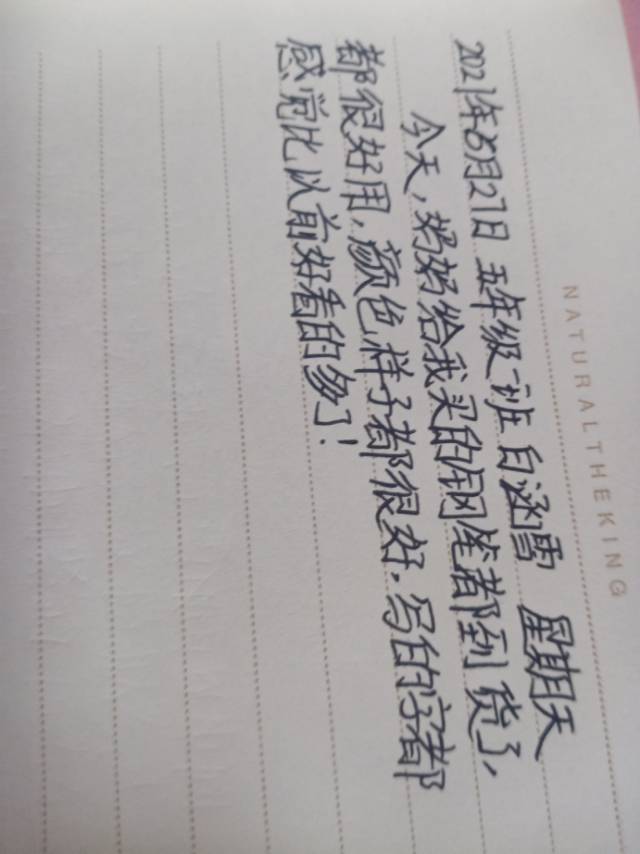 NATURALTHEKING
2021年6月27日 五年级一班 白涵雪 星期天
今天,妈妈给我买的钢笔都到货了,
都很好用,颜色样子都很好,写的字都
感觉比以前好看的多了!